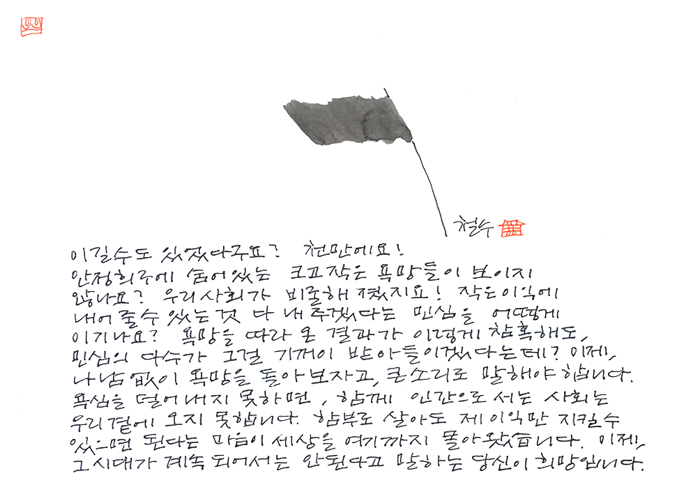 철수
이길수도 있었다구요? 천만에요!
안정희구에 숨어있는 크고작은 욕망들이 보이지
않나요? 우리사회가 비굴해 졌지요! 작은이익에
내어 줄수 있는것 다 내주겠다는 민심을 어떻게
이기나요? 욕망을 따라 온 결과가 이렇게 참혹해도,
민심의 다수가 그걸 기꺼이 받아들이겠다는데? 이제,
나남없이 욕망을 돌아보자고, 큰소리로 말해야 합니다.
욕심을 덜어내지 못하면, 함께 인간으로서는 사회는
우리곁에 오지 못합니다. 함부로 살아도 제이익만 지킬수
있으면 된다는 마음이 세상을 여기까지 몰아왔습니다. 이제,
그시대가 계속 되어서는 안된다고 말하는 당신이 희망입니다.